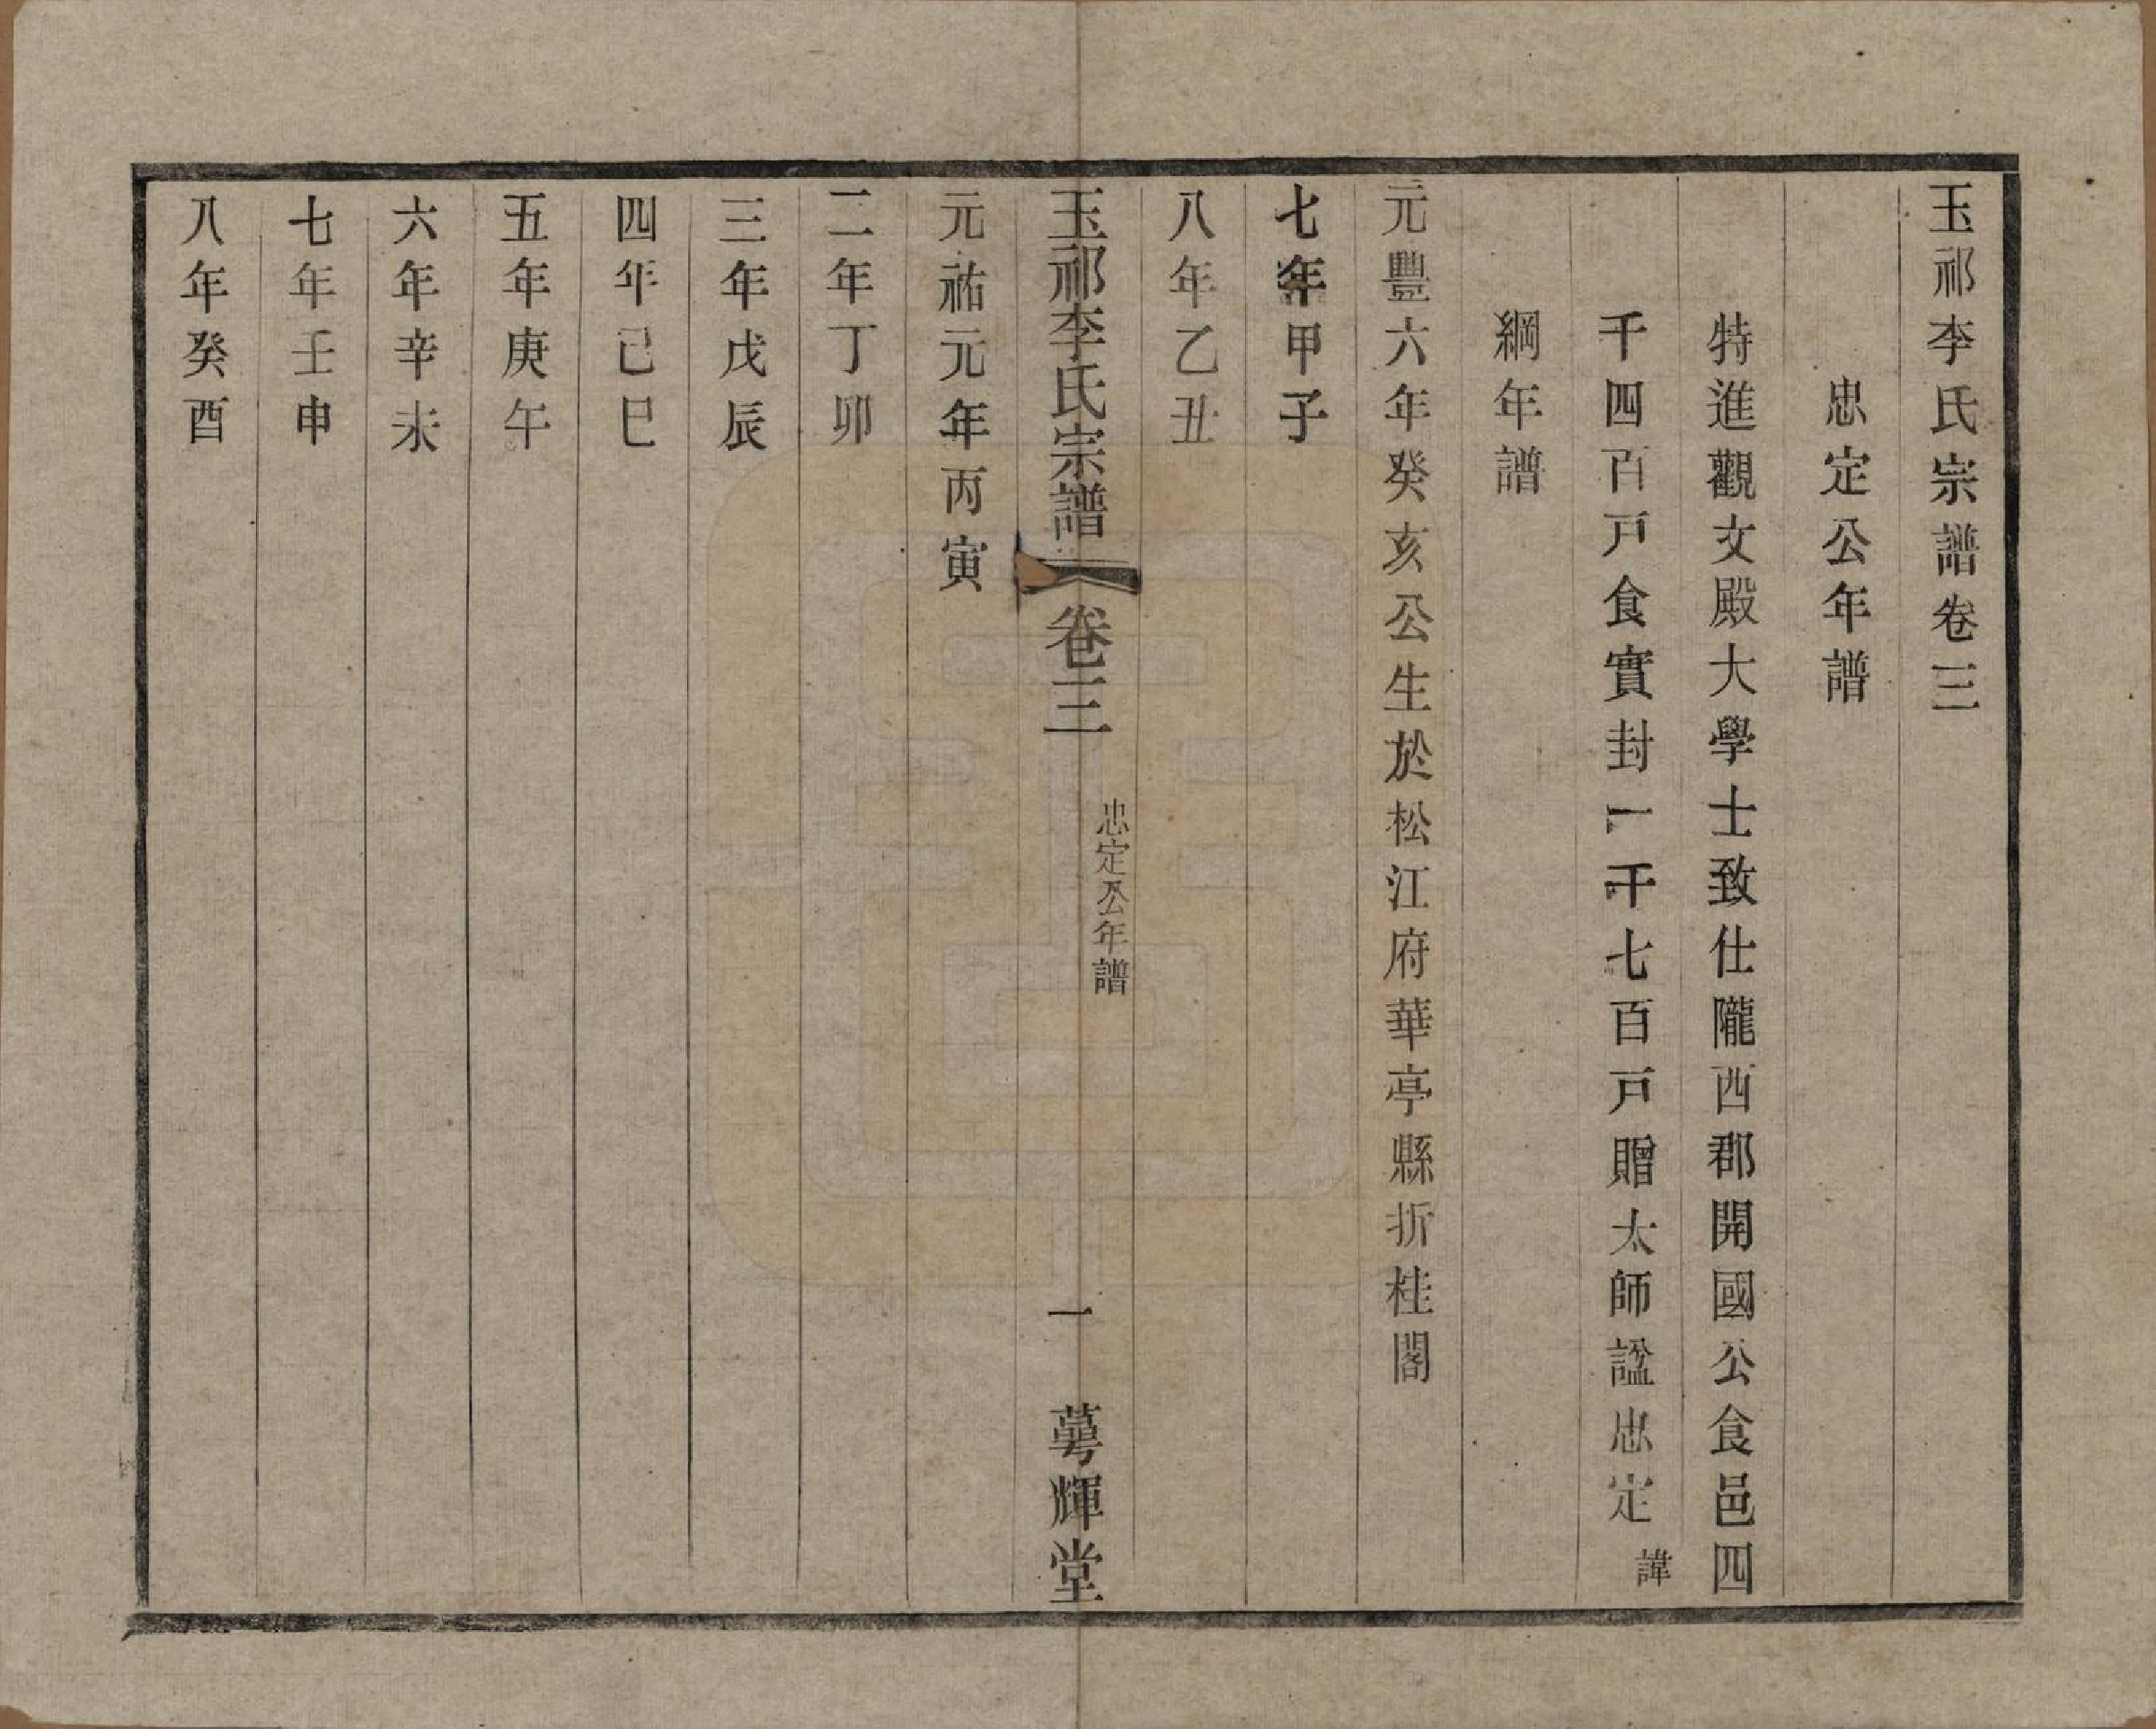 玉祁李氏宗譜卷三
忠定公年譜
特進觀文殿大學士致仕隴西郡開國公食邑四
千四百戸食實封一千七百戸贈太師諡忠定諱
綱年譜
元豐六年癸亥公生於松江府華亭縣折桂閣
七年甲子
八年乙丑
玉祁李氏宗譜 卷三 忠定公年譜 一 萼輝堂
元祐元年丙寅
二年丁卯
三年戊辰
四年己巳
五年庚午
六年辛未
七年壬申
八年癸酉